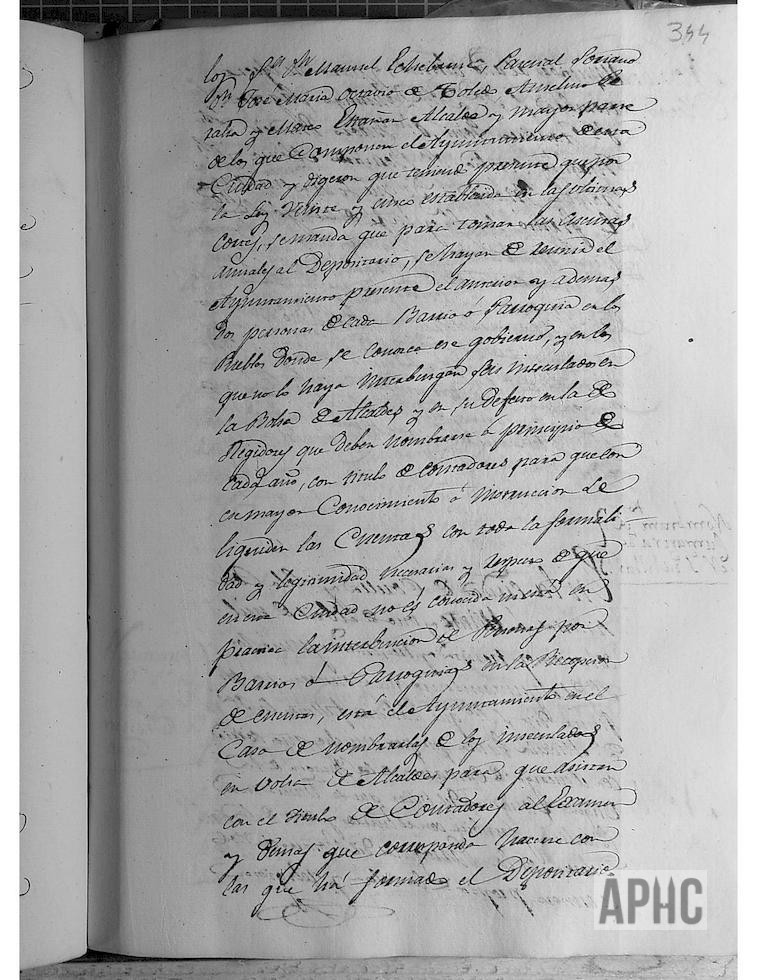 344
los Srs. Dn. Manuel Echebarne, Pascual Soriano
Dn. José Maria Octavio de Toledo Anselmo Pe
ralta y Marco Estañan Alcalde y mayor parte
de los que Componen el Ayuntamiento de esta
Ciudad y digeron que teniendo presente que por
la Ley Veinte y cinco establecida en las ultimas
Cortes, se manda que para tomar las cuentas
annales al Depositario, se hayan de reunir el
Ayuntamiento presente el anterior y ademas
dos personas de cada Barrio ó Parroquia en los
Pueblos donde se conozca ese gobierno, y en los
que no lo haya interbengan seis inseculados en
la Bolsa de Alcaldes y en su defecto en la de
Regidores que deben nombrarse a principio de
cada año, con titulo de Contadores para que con
el mayor Conocimiento é instruccion se
liquiden las Cuentas con toda la formali
dad y legitimidad necesarias y respecto de que
en esta Ciudad no es conocida ni está en
practica la interbencion de Personas por
Barrios ó Parroquias en la Recepcion
de cuentas, está el Ayuntamiento en el
Caso de nombrarlas de los inseculados
en bolsa de Alcaldes para que asistan
con el titulo de Contadores al Examen
y demas que corresponda hacerse con
las que há formado el Depositario
APHC